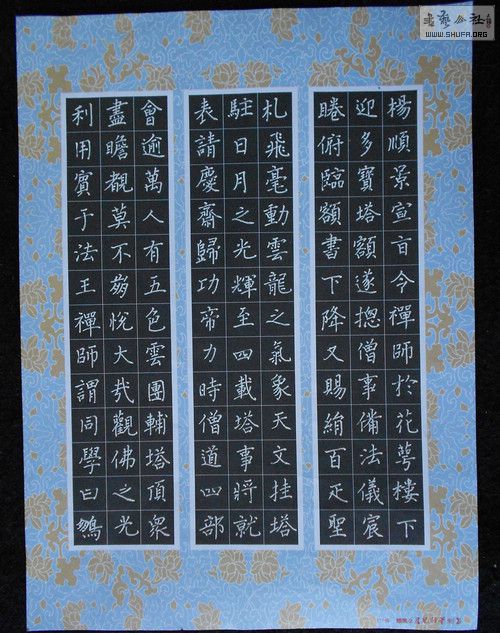 書藝公社
WWW.SHUFA.ORG
楊順景宣旨令禪師於花萼樓下
迎多寶塔額遂摠僧事備法儀宸
睠俯臨額書下降又賜絹百疋聖
札飛毫動雲龍之氣象天文挂塔
駐日月之光輝至四載塔事將就
表請慶齋歸功帝力時僧道四部
會逾萬人有五色雲團輔塔頂衆
盡瞻覩莫不崩悅大哉觀佛之光
利用賓于法王禪師謂同學曰鵬